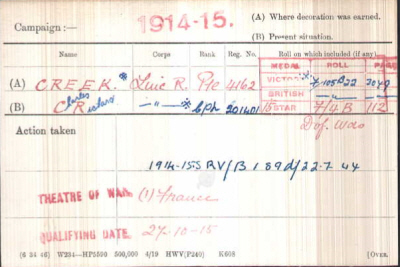 Campaign :— 1914-15. (A) Where decoration was earned.
(B) Present situation.
Name Corps Rank Reg. No. Roll on which included (if any).
MEDAL ROLL PAGE
(A) CREEK. Linc R. Pte 4162 VICTORY
BRITISH —"— —"—
(B) Charles Richard —"— Cpl 201401 15 STAR 7/4 B 112
Action taken
THEATRE OF WAR. (1) France
QUALIFYING DATE. 27-10-15
(6 34 46) W234—HP5590 500,000 4/19 HWV(P240) K608 [Over.